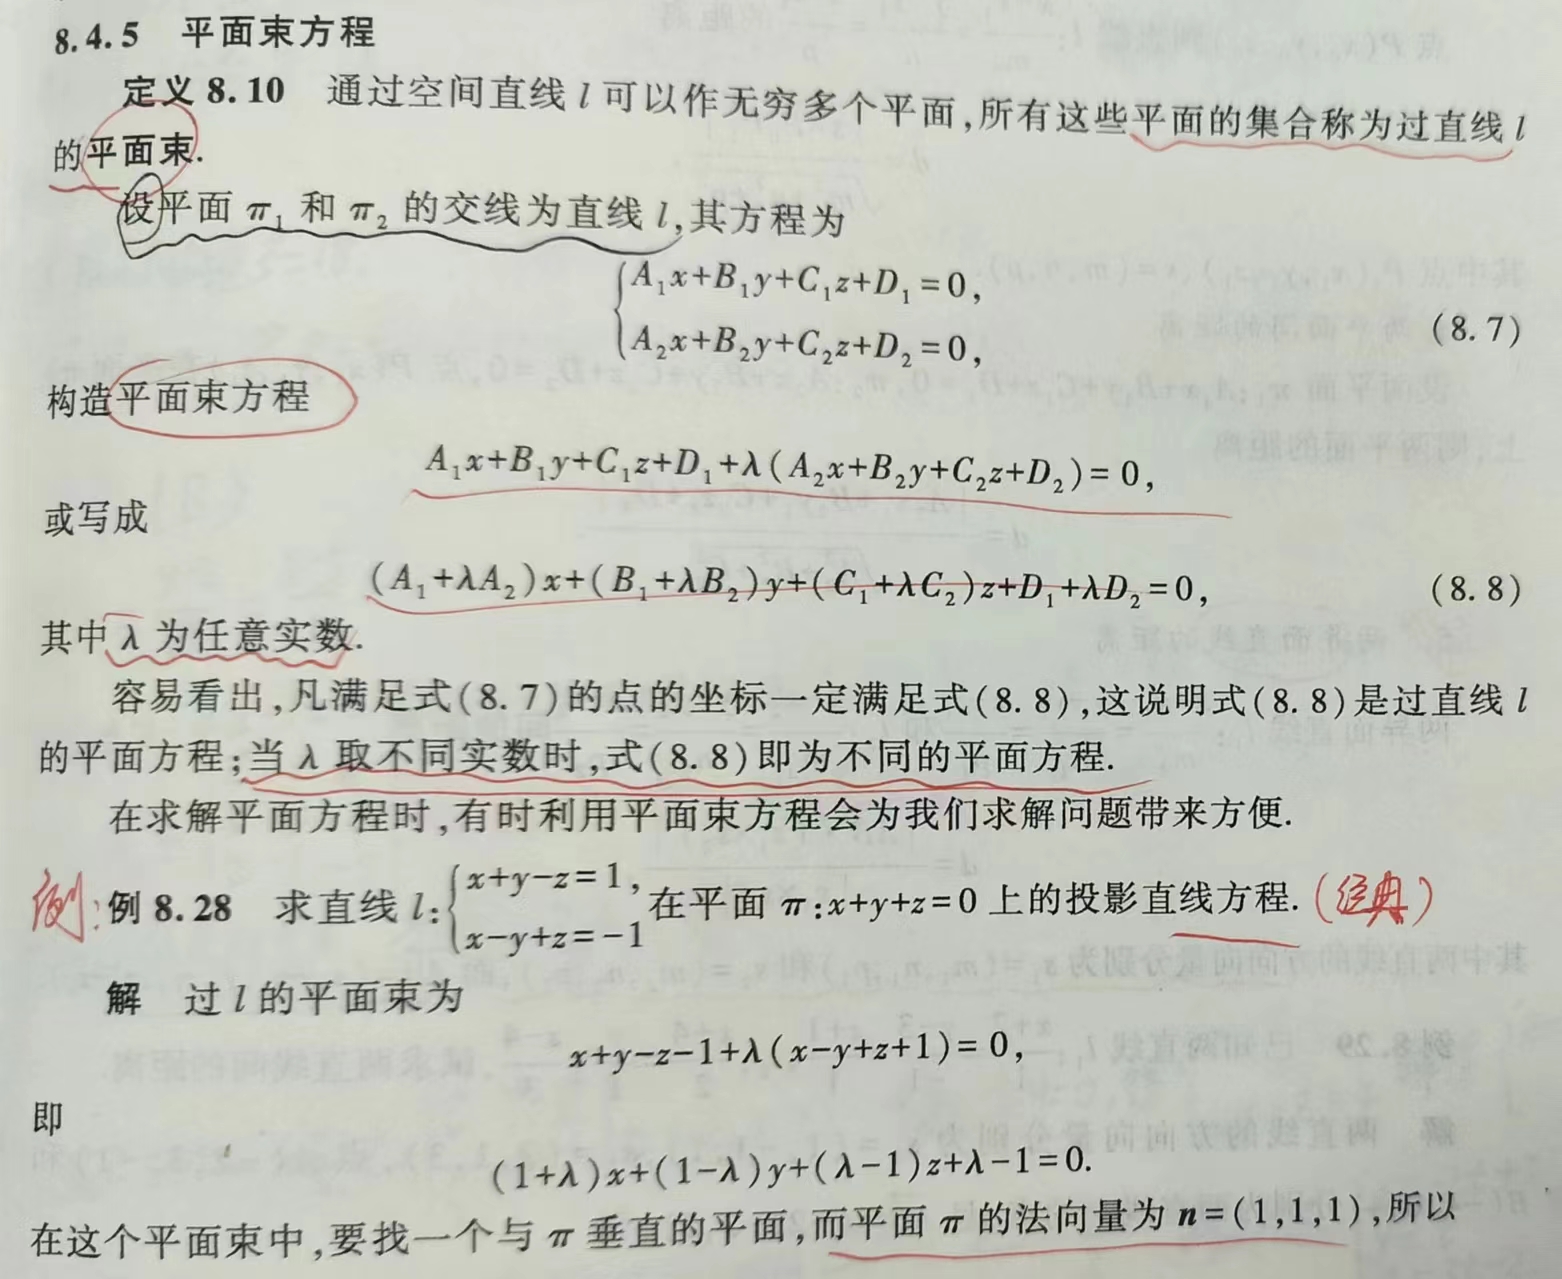 8.4.5 平面束方程
定义 8.10 通过空间直线 l 可以作无穷多个平面,所有这些平面的集合称为过直线 l
的平面束.
设平面 π₁ 和 π₂ 的交线为直线 l,其方程为
A₁x+B₁y+C₁z+D₁=0,
A₂x+B₂y+C₂z+D₂=0,
(8.7)
构造平面束方程
A₁x+B₁y+C₁z+D₁+λ(A₂x+B₂y+C₂z+D₂)=0,
或写成
(A₁+λA₂)x+(B₁+λB₂)y+(C₁+λC₂)z+D₁+λD₂=0, (8.8)
其中 λ 为任意实数.
容易看出,凡满足式(8.7)的点的坐标一定满足式(8.8),这说明式(8.8)是过直线 l
的平面方程;当 λ 取不同实数时,式(8.8)即为不同的平面方程.
在求解平面方程时,有时利用平面束方程会为我们求解问题带来方便.
例: 例 8.28 求直线 l:{x+y-z=1, x-y+z=-1 在平面 π:x+y+z=0 上的投影直线方程. (经典)
解 过 l 的平面束为
x+y-z-1+λ(x-y+z+1)=0,
即
(1+λ)x+(1-λ)y+(λ-1)z+λ-1=0.
在这个平面束中,要找一个与 π 垂直的平面,而平面 π 的法向量为 n=(1,1,1),所以